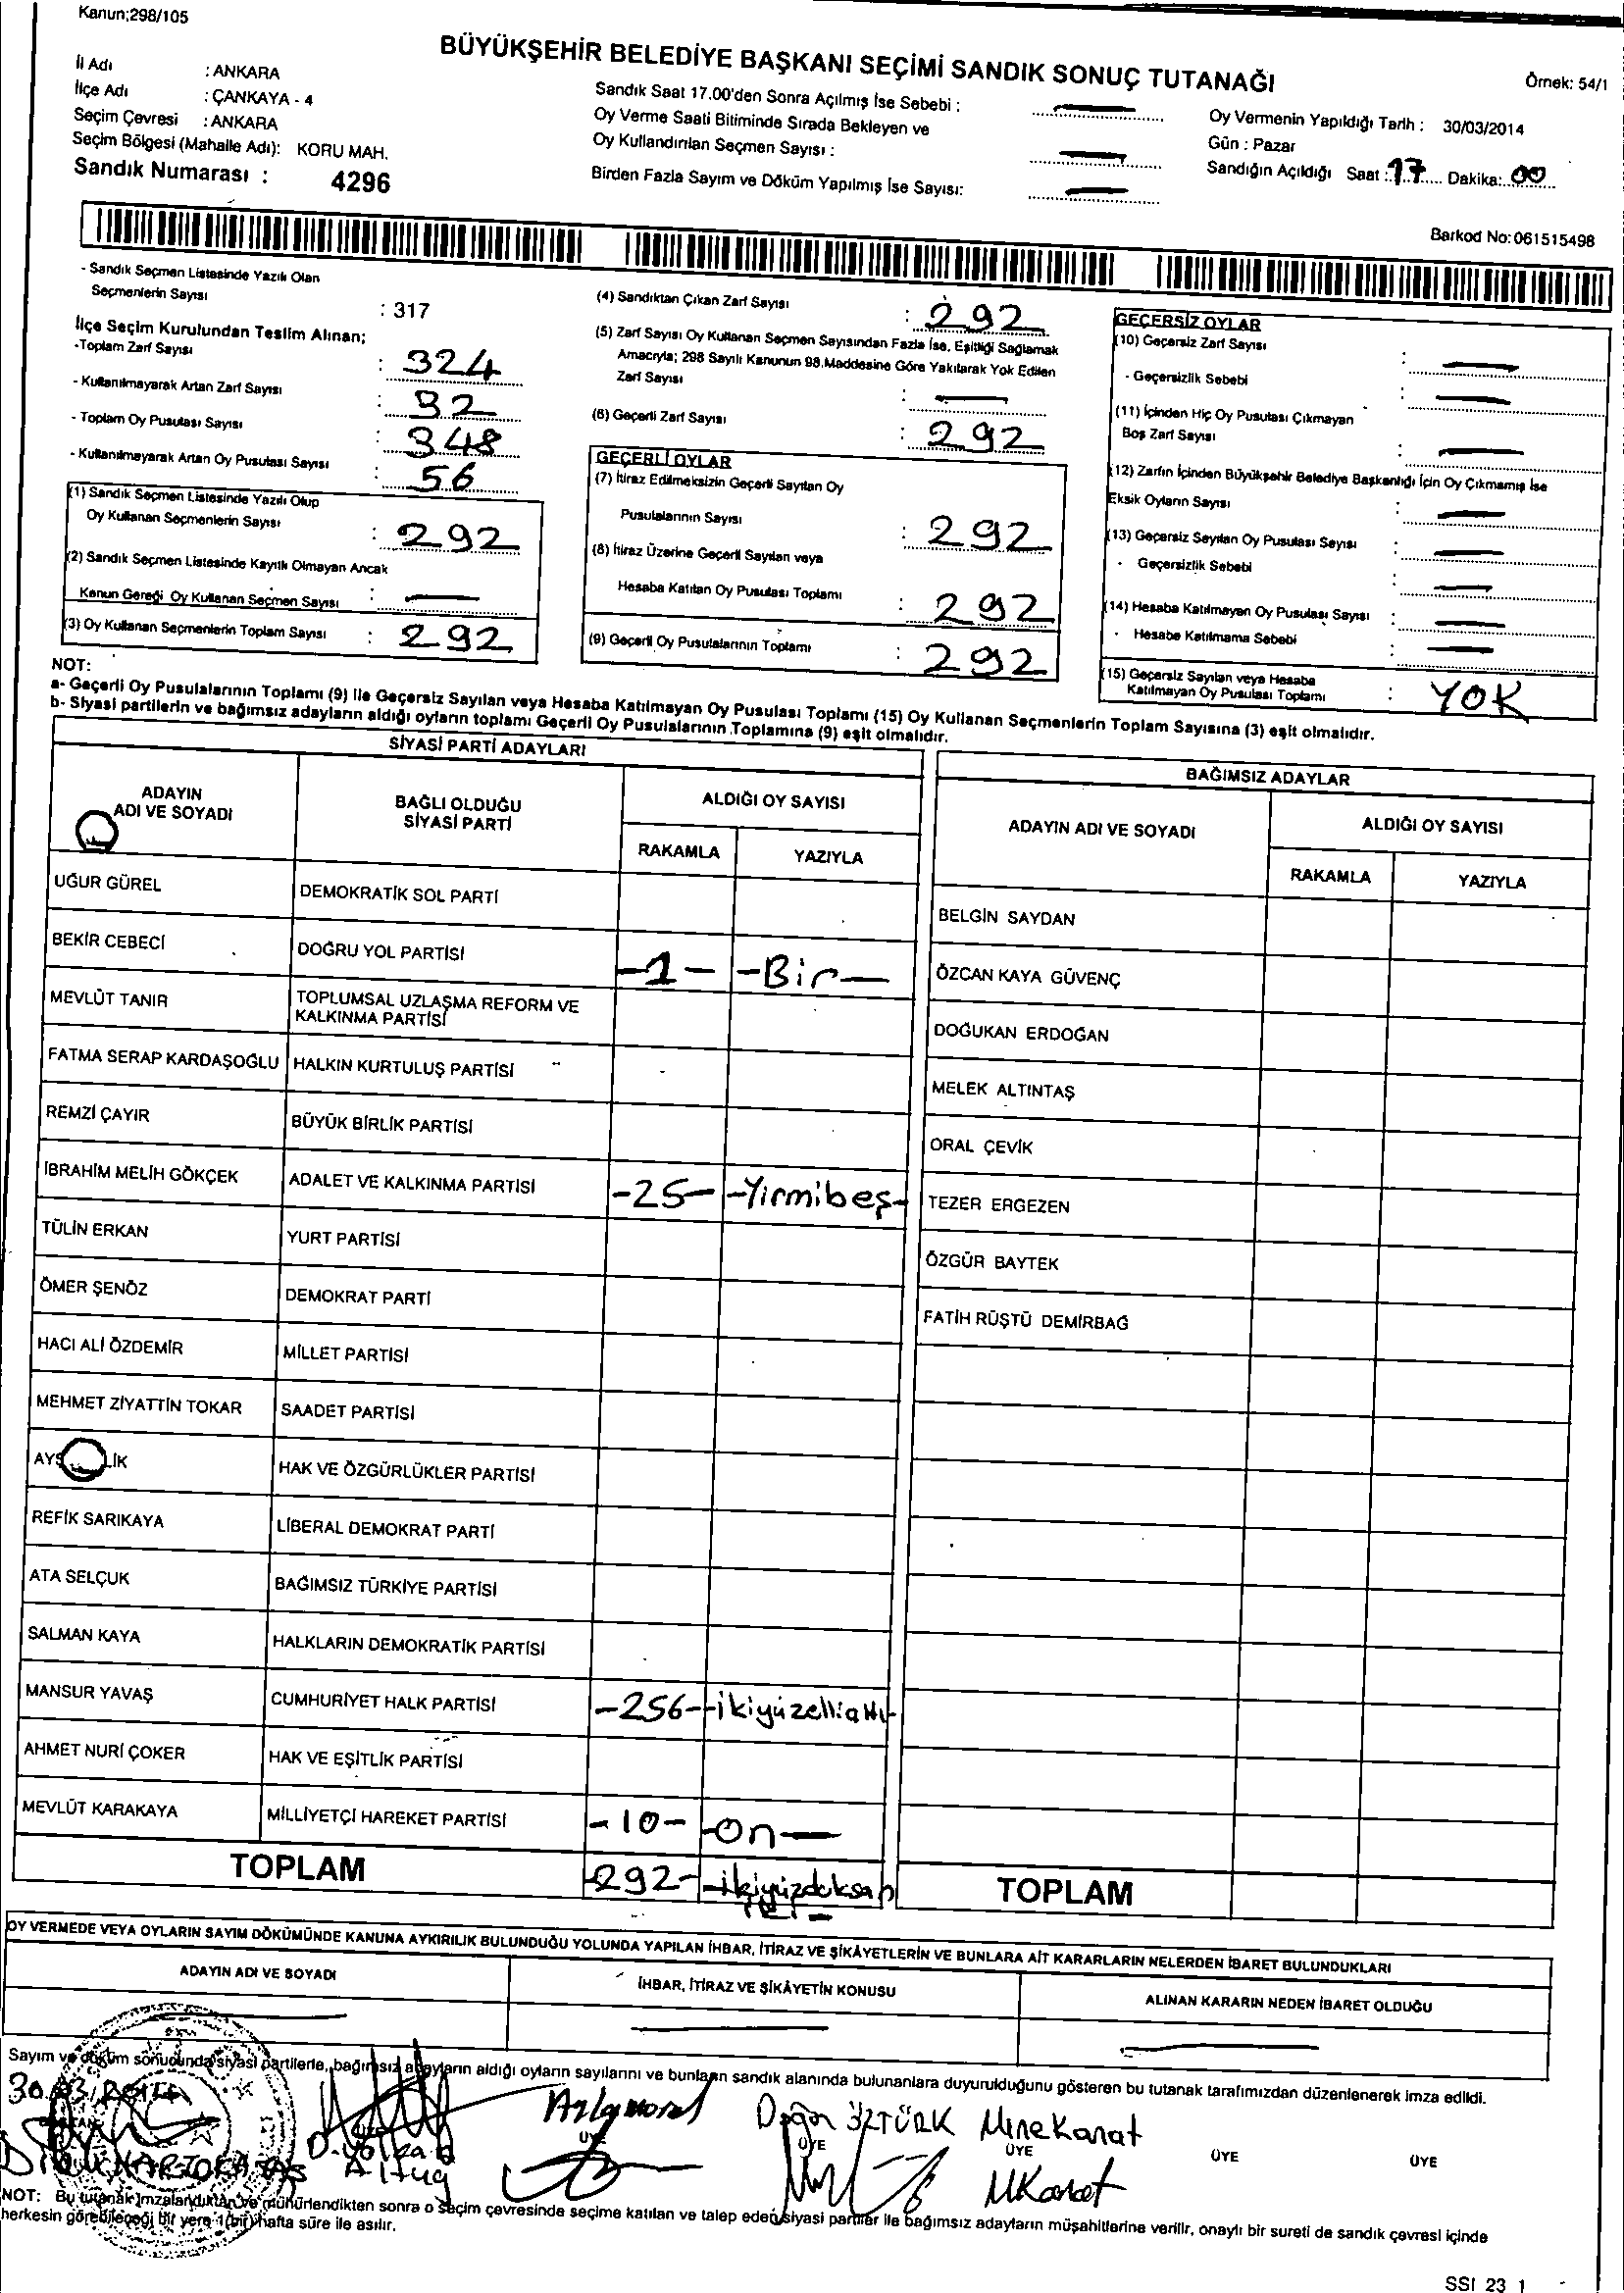 Kanun:298/105
BÜYÜKŞEHİR BELEDİYE BAŞKANI SEÇİMİ SANDIK SONUÇ TUTANAĞI
Örnek: 54/1
İl Adı : ANKARA
İlçe Adı : ÇANKAYA - 4
Seçim Çevresi : ANKARA
Seçim Bölgesi (Mahalle Adı): KORU MAH.
Sandık Numarası : 4296
Sandık Saat 17.00'den Sonra Açılmış İse Sebebi : —
Oy Verme Saati Bitiminde Sırada Bekleyen ve
Oy Kullandırılan Seçmen Sayısı : —
Birden Fazla Sayım ve Döküm Yapılmış İse Sayısı: —
Oy Vermenin Yapıldığı Tarih : 30/03/2014
Gün : Pazar
Sandığın Açıldığı Saat : 17 Dakika: 00
Barkod No: 061515498
- Sandık Seçmen Listesinde Yazılı Olan
Seçmenlerin Sayısı : 317
İlçe Seçim Kurulundan Teslim Alınan;
-Toplam Zarf Sayısı : 324
- Kullanılmayarak Artan Zarf Sayısı : 32
- Toplam Oy Pusulası Sayısı : 348
- Kullanılmayarak Artan Oy Pusulası Sayısı : 56
(1) Sandık Seçmen Listesinde Yazılı Olup
Oy Kullanan Seçmenlerin Sayısı : 292
(2) Sandık Seçmen Listesinde Kayıtlı Olmayan Ancak
Kanun Gereği Oy Kullanan Seçmen Sayısı : —
(3) Oy Kullanan Seçmenlerin Toplam Sayısı : 292
(4) Sandıktan Çıkan Zarf Sayısı : 292
(5) Zarf Sayısı Oy Kullanan Seçmen Sayısından Fazla İse, Eşitliği Sağlamak
Amacıyla; 298 Sayılı Kanunun 98.Maddesine Göre Yakılarak Yok Edilen
Zarf Sayısı : —
(6) Geçerli Zarf Sayısı : 292
GEÇERLİ OYLAR
(7) İtiraz Edilmeksizin Geçerli Sayılan Oy
Pusulalarının Sayısı : 292
(8) İtiraz Üzerine Geçerli Sayılan veya
Hesaba Katılan Oy Pusulası Toplamı : 292
(9) Geçerli Oy Pusulalarının Toplamı : 292
GEÇERSİZ OYLAR
(10) Geçersiz Zarf Sayısı : —
- Geçersizlik Sebebi : —
(11) İçinden Hiç Oy Pusulası Çıkmayan
Boş Zarf Sayısı : —
(12) Zarfın İçinden Büyükşehir Belediye Başkanlığı İçin Oy Çıkmamış İse
Eksik Oyların Sayısı : —
(13) Geçersiz Sayılan Oy Pusulası Sayısı : —
- Geçersizlik Sebebi : —
(14) Hesaba Katılmayan Oy Pusulası Sayısı : —
- Hesaba Katılmama Sebebi : —
(15) Geçersiz Sayılan veya Hesaba
Katılmayan Oy Pusulası Toplamı : YOK
NOT:
a- Geçerli Oy Pusulalarının Toplamı (9) ile Geçersiz Sayılan veya Hesaba Katılmayan Oy Pusulası Toplamı (15) Oy Kullanan Seçmenlerin Toplam Sayısına (3) eşit olmalıdır.
b- Siyasi partilerin ve bağımsız adayların aldığı oyların toplamı Geçerli Oy Pusulalarının Toplamına (9) eşit olmalıdır.
SİYASİ PARTİ ADAYLARI
ADAYIN
ADI VE SOYADI
BAĞLI OLDUĞU
SİYASİ PARTİ
ALDIĞI OY SAYISI
RAKAMLA YAZIYLA
UĞUR GÜREL DEMOKRATİK SOL PARTİ
BEKİR CEBECİ DOĞRU YOL PARTİSİ -1- -Bir-
MEVLÜT TANIR TOPLUMSAL UZLAŞMA REFORM VE
KALKINMA PARTİSİ
FATMA SERAP KARDAŞOĞLU HALKIN KURTULUŞ PARTİSİ
REMZİ ÇAYIR BÜYÜK BİRLİK PARTİSİ
İBRAHİM MELİH GÖKÇEK ADALET VE KALKINMA PARTİSİ -25- -Yirmibeş-
TÜLİN ERKAN YURT PARTİSİ
ÖMER ŞENÖZ DEMOKRAT PARTİ
HACI ALİ ÖZDEMİR MİLLET PARTİSİ
MEHMET ZİYATTİN TOKAR SAADET PARTİSİ
HAK VE ÖZGÜRLÜKLER PARTİSİ
REFİK SARIKAYA LİBERAL DEMOKRAT PARTİ
ATA SELÇUK BAĞIMSIZ TÜRKİYE PARTİSİ
SALMAN KAYA HALKLARIN DEMOKRATİK PARTİSİ
MANSUR YAVAŞ CUMHURİYET HALK PARTİSİ -256- -ikiyüzellialtı-
AHMET NURİ ÇOKER HAK VE EŞİTLİK PARTİSİ
MEVLÜT KARAKAYA MİLLİYETÇİ HAREKET PARTİSİ -10- -On-
TOPLAM -292- -ikiyüzdoksan
iki-
BAĞIMSIZ ADAYLAR
ADAYIN ADI VE SOYADI
ALDIĞI OY SAYISI
RAKAMLA YAZIYLA
BELGİN SAYDAN
ÖZCAN KAYA GÜVENÇ
DOĞUKAN ERDOĞAN
MELEK ALTINTAŞ
ORAL ÇEVİK
TEZER ERGEZEN
ÖZGÜR BAYTEK
FATİH RÜŞTÜ DEMİRBAĞ
TOPLAM
OY VERMEDE VEYA OYLARIN SAYIM DÖKÜMÜNDE KANUNA AYKIRILIK BULUNDUĞU YOLUNDA YAPILAN İHBAR, İTİRAZ VE ŞİKÂYETLERİN VE BUNLARA AİT KARARLARIN NELERDEN İBARET BULUNDUKLARI
ADAYIN ADI VE SOYADI
İHBAR, İTİRAZ VE ŞİKÂYETİN KONUSU
ALINAN KARARIN NEDEN İBARET OLDUĞU
Sayım ve döküm sonucunda siyasi partilerle, bağımsız adayların aldığı oyların sayılarını ve bunların sandık alanında bulunanlara duyurulduğunu gösteren bu tutanak tarafımızdan düzenlenerek imza edildi.
30.03.2014
Doğan ÖZTÜRK Mine Kanat
Altuğ
ÜYE ÜYE ÜYE ÜYE ÜYE
MKanat
NOT: Bu tutanak imzalandıktan ve mühürlendikten sonra o seçim çevresinde seçime katılan ve talep eden siyasi partiler ile bağımsız adayların müşahitlerine verilir, onaylı bir sureti de sandık çevresi içinde
herkesin görebileceği bir yere 1(bir) hafta süre ile asılır.
SSI 23 1